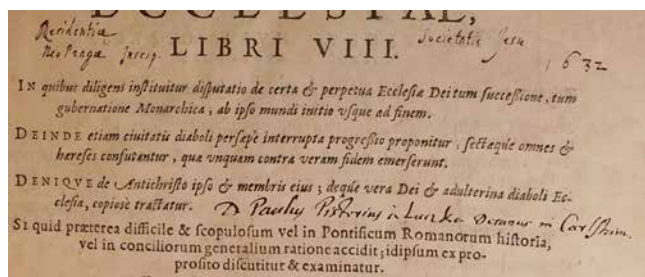 ECCLESIAE,
Residentiæ Societatis Jesu
Neo Pragæ Inscrip. LIBRI VIII. 1632
IN quibus diligens instituitur disputatio de certa & perpetua Ecclesiæ Dei tum successione, tum
gubernatione Monarchica, ab ipso mundi initio vsque ad finem.
DEINDE etiam ciuitatis diaboli persæpe interrupta progressio proponitur, sectæque omnes &
hæreses confutantur, quæ vnquam contra veram fidem emerserunt.
DENIQVE de Antichristo ipso & membris eius; deque vera Dei & adulterina diaboli Ec-
clesia, copiose tractatur. D Paulus Pistorius in Decanus in
SI quid præterea difficile & scopulosum vel in Pontificum Romanorum historia,
vel in conciliorum generalium ratione accidit; idipsum ex pro-
posito discutitur & examinatur.